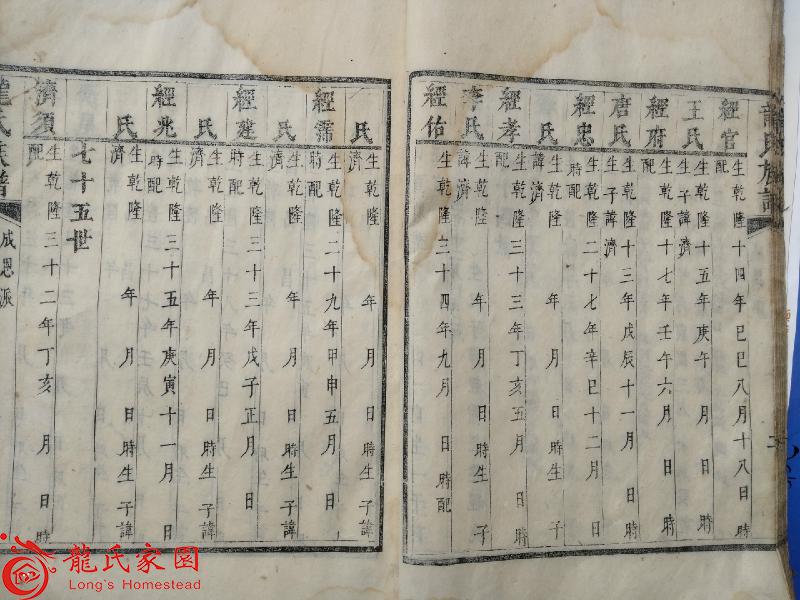 龍氏族譜
經官 生乾隆十四年己巳八月十八日時
王氏 生子諱濟
配 生乾隆十五年庚午 月 日 時
經府 生乾隆十七年壬申六月 日 時
唐氏 生子諱濟
配 生乾隆十三年戊辰十一月 日 時
經忠 生乾隆二十七年辛巳十二月 日
時配
氏 生乾隆 年 月 日時生子
諱濟
經孝 生乾隆三十三年丁亥五月 日 時
配
李氏 生乾隆 年 月 日時生子
諱濟
經佑 生乾隆二十四年九月 日時配
氏 生乾隆 年 月 日時生子諱
濟
經濡 生乾隆二十九年甲申五月 日
時配
氏 生乾隆 年 月 日時生子諱
濟
經建 生乾隆三十三年戊子正月 日
時配
氏 生乾隆 年 月 日時生子諱
濟
經兆 生乾隆三十五年庚寅十一月 日
時配
氏 生乾隆 年 月 日時生子諱
濟
七十五世
濟須 生乾隆三十二年丁亥 月 日 時
配
龍氏族譜 成恩派
龍氏家園
Long's Homestead